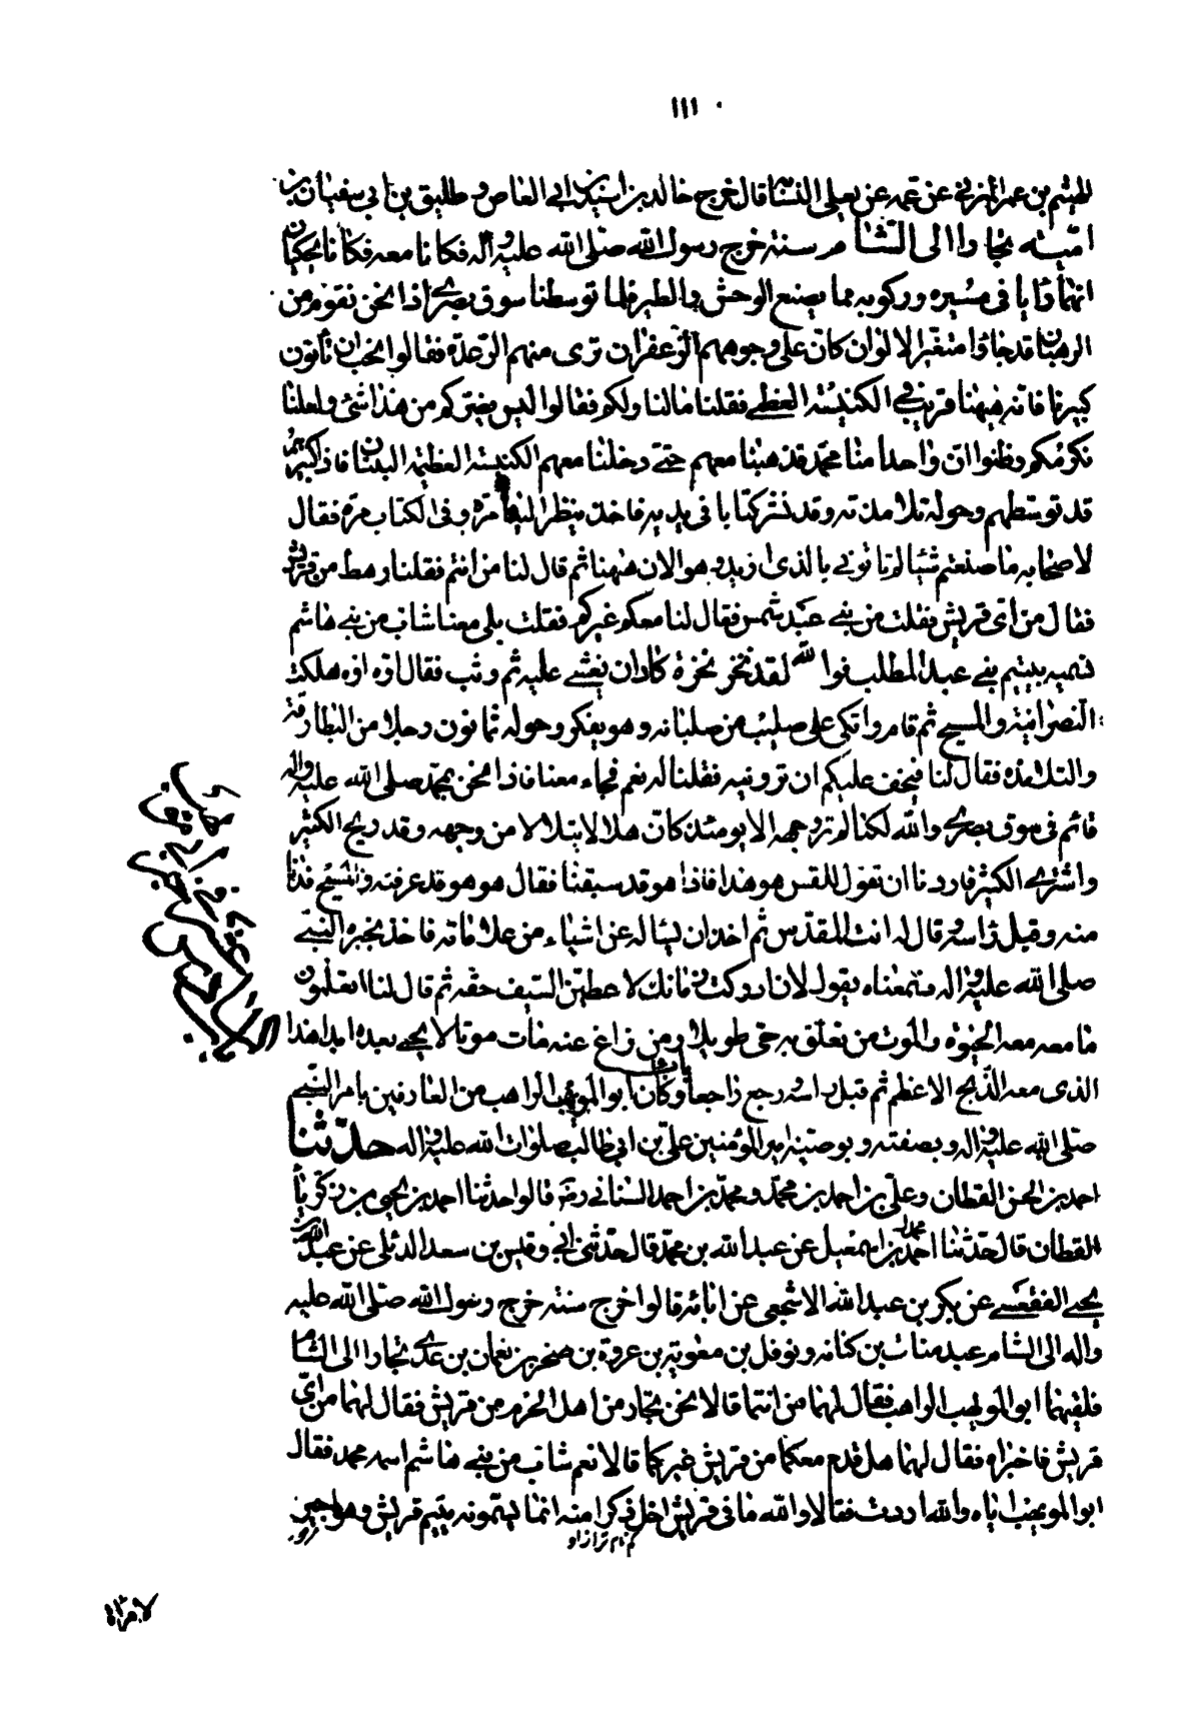 ١١١
الهيثم بن عمر المزني عن عمه عن يعلى النسابة قال خرج خالد بن اسيد بن ابي العاص و طليق بن ابي سفيان بن
امية تجارا الى الشام سنة خرج رسول الله صلى الله عليه وآله فكانا معه فكانا يحكيان
انهما رايا في مسيره وركوبه مما يصنع الوحش والطير فلما توسطنا سوق بصرى اذا نحن بقوم من
الرهبان قد جاؤا متغير الالوان كان على وجوههم الزعفران ترى منهم الرعدة فقالوا نحب ان تاتون
كبيرنا فانه هيهنا قريب في الكنيسة العظمى فقلنا مالنا ولكم فقالوا ليس يضركم من هذا شئ ولعلنا
نكرمكم وظنوا ان واحدا منا محمد فذهبنا معهم حتى دخلنا معهم الكنيسة العظيمة البنيان فاذا كبيرهم
قد توسطهم وحوله تلامذته وقد نشر كتابا في يديه فاخذ ينظر الينا مرة وفى الكتاب مرة فقال
لاصحابه ما صنعتم شيئا لم تاتوني بالذى اريد وهو الان هيهنا ثم قال لنا من انتم فقلنا رهط من قريش
فقال من اى قريش فقلت من بني عبد شمس فقال لنا معكم غيركم فقلت بلى معنا شاب من بني هاشم
نسميه يتيم بني عبد المطلب فوالله لقد نخر نخرة كاد ان يغشى عليه ثم وثب فقال اوه اوه هلكت
النصرانية والمسيح ثم قام واتكى على صليب من صلبانه وهو يفكر وحوله ثمانون رجلا من البطارقة
والتلامذة فقال لنا فيخف عليكم ان ترونيه فقلنا له نعم فجاء معنا فاذا نحن بمحمد صلى الله عليه وآله
قائم في سوق بصرى والله لكنا لم نر وجهه الا يومئذ كان هلالا يتلالا من وجهه وقد ربح الكثير
واشترى الكثير فاردنا ان نقول للقس هو هذا فاذا هو قد سبقنا فقال هو هو قد عرفته والمسيح فدنا
منه وقبل راسه وقال له انت المقدس ثم اخذ ان يسئاله عن اشياء من علاماته فاخذ يخبره النبي
صلى الله عليه وآله فسمعناه يقول لان ادركت زمانك لاعطين السيف حقه ثم قال لنا اتعلمون
ما معه معه الحيوة والموت من تعلق به حي طويلا ومن زاغ عنه مات موتا لا يحيى بعده ابدا هذا
الذى معه الذبح الاعظم ثم قبل راسه ورجع راجعا وكان ابو المويهب الراهب من العارفين بامر النبي
صلى الله عليه وآله وبصفته وبوصيته امير المؤمنين علي بن ابي طالب صلوات الله عليه وآله حدثنا
احمد بن الحسن القطان وعلي بن احمد بن محمد ومحمد بن احمد السناني رضه قالوا حدثنا احمد بن يحيى بن زكريا
القطان قال حدثنا محمد بن اسمعيل عن عبد الله بن محمد قال حدثني ابي وقيس بن سعد الدئلي عن عبد الله بن
يحيى الفقعسي عن بكر بن عبد الله الاشجعي عن ابائه قالوا خرج سنة خرج رسول الله صلى الله عليه
وآله الى الشام عبد مناة بن كنانه ونوفل بن معوية بن عروة بن صخر بن نعمان بن عدى تجارا الى الشام
فلقيهما ابو المويهب الراهب فقال لهما من انتما قالا نحن تجار من اهل الحرم من قريش فقال لهما من اي
قريش فاخبراه فقال لهما هل قدم معكما من قريش غيركما قالا نعم شاب من بني هاشم اسمه محمد فقال
ابو المويهب اياه والله اردت فقالا والله ما في قريش اخمل ذكرا منه انما يسمونه يتيم قريش وهو اجير
لامراة